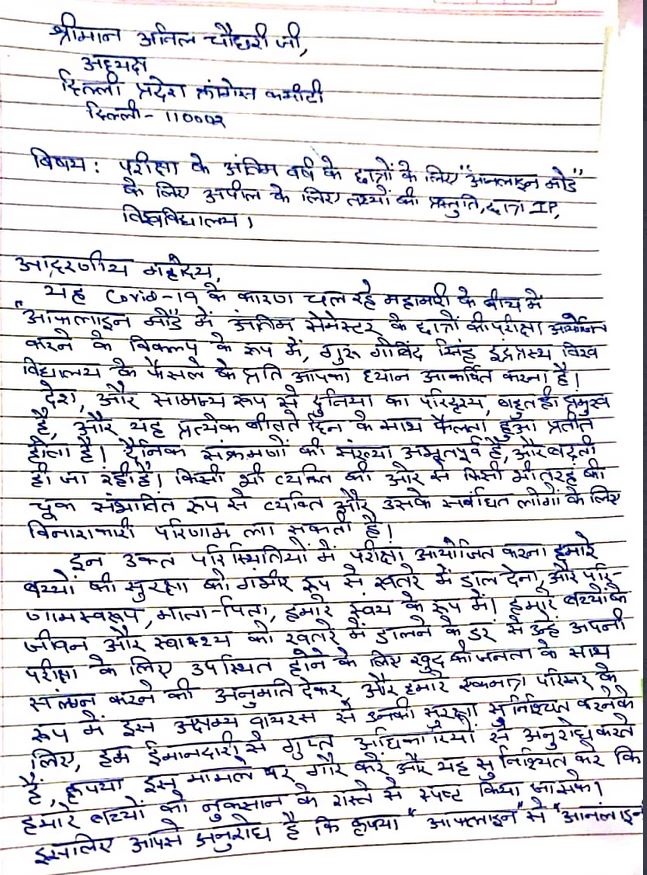 श्रीमान अनिल चौधरी जी,
अध्यक्ष
दिल्ली प्रदेश कांग्रेस कमीटी
दिल्ली - 110002
बिषय : परीक्षा के अंतिम वर्ष के छात्रों के लिए "आनलाइन मोड"
के लिए अपील के लिए तथ्यों की प्रस्तुति, द्वारा IP,
विश्वविधालय।
आदरणीय महोदय,
यह Covid-19 के कारण चल रहे महामारी के बीच में
"आफलाइन मोड में अंतिम सेमेस्टर के छात्रों की परीक्षा आयोजन
करने के विकल्प के रूप में, गुरू गोविंद सिंह इंद्रप्रस्थ विश्व
विधालय के फैसले के प्रति आपका ध्यान आकर्षित करना है।
देश, और सामान्य रूप से दुनिया का परिदृश्य, बहुत ही
है, और यह प्रत्येक बीतते दिन के साथ फैलता हुआ प्रतीत
होता है। दैनिक संक्रमणों की संख्या अभूतपूर्व है, और बढ़ती
ही जा रही है। किसी भी व्यक्ति की ओर से किसी भी तरह की
चूक संभावित रूप से व्यक्ति और उसके संबंधित लोगों के लिए
विनाशकारी परिणाम ला सकती है।
इन उक्त परिस्थितियों में परीक्षा आयोजित करना हमारे
बच्चों की सुरक्षा को गंभीर रूप से खतरे में डाल देना, और परि-
णामस्वरूप, माता-पिता, हमारे स्वयं के रूप में। हमारे बच्चों के
जीवन और स्वास्थ्य को खतरे में डालने के डर से उन्हें अपनी
परीक्षा के लिए उपस्थित होने के लिए खुद को जनता के साथ
संलग्न करने की अनुमति देकर, और हमारे एकमात्र परिसर के
रूप में इस अक्षम्य वायरस से उनकी सुरक्षा सुनिश्चित करने के
लिए, हम ईमानदारी से गुप्त अधिकारियों से अनुरोध करते
हैं, कृपया इस मामले पर गौर करें और यह सुनिश्चित करे कि
हमारे बच्चों को नुकसान के रास्ते से स्पष्ट किया जा सके।
इसलिए आपसे अनुरोध है कि कृप्या "आफलाइन" से "आनलाइन